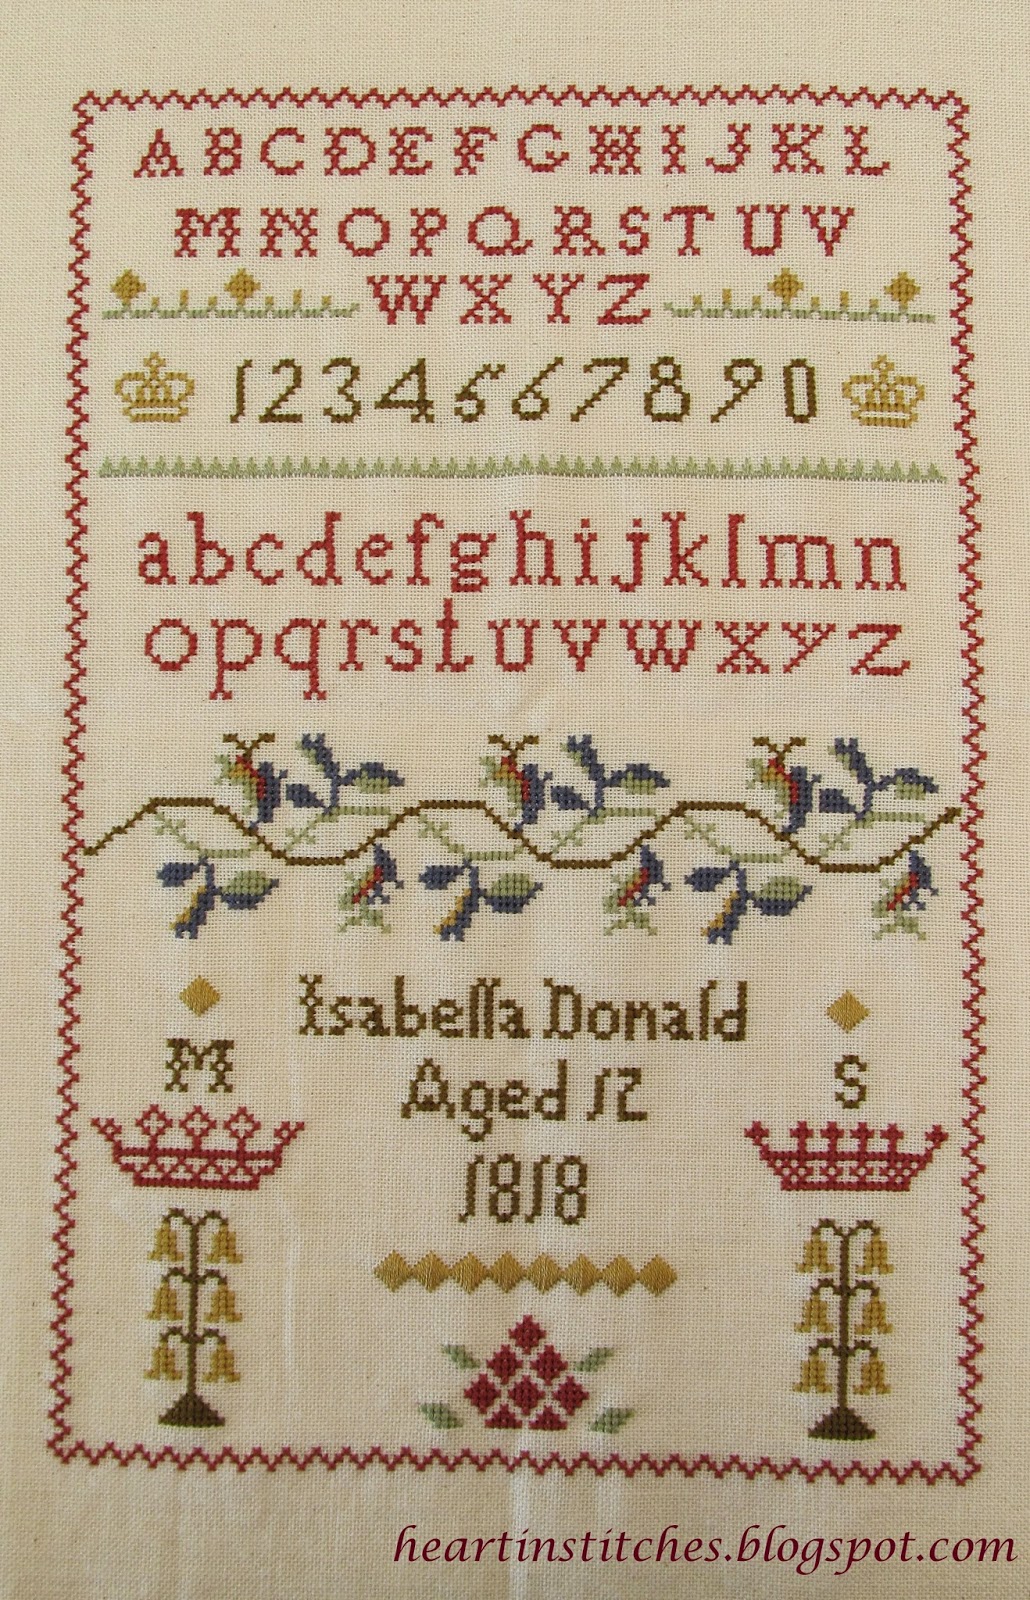 ABCDEFGHIJKL
MNOPQRSTUV
WXYZ
1234567890
abcdefghijklmn
opqrstuvwxyz
Isabella Donald
M
S
Aged 12
1818
heartinstitches.blogspot.com